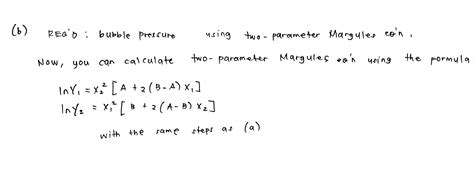 (b) REQ'D : bubble pressure using two-parameter Margules eq'n .
Now, you can calculate two-parameter Margules eq'n using the formula
lnγ₁ = x₂² [ A + 2 ( B - A ) x₁ ]
lnγ₂ = x₁² [ B + 2 ( A - B ) x₂ ]
with the same steps as (a)